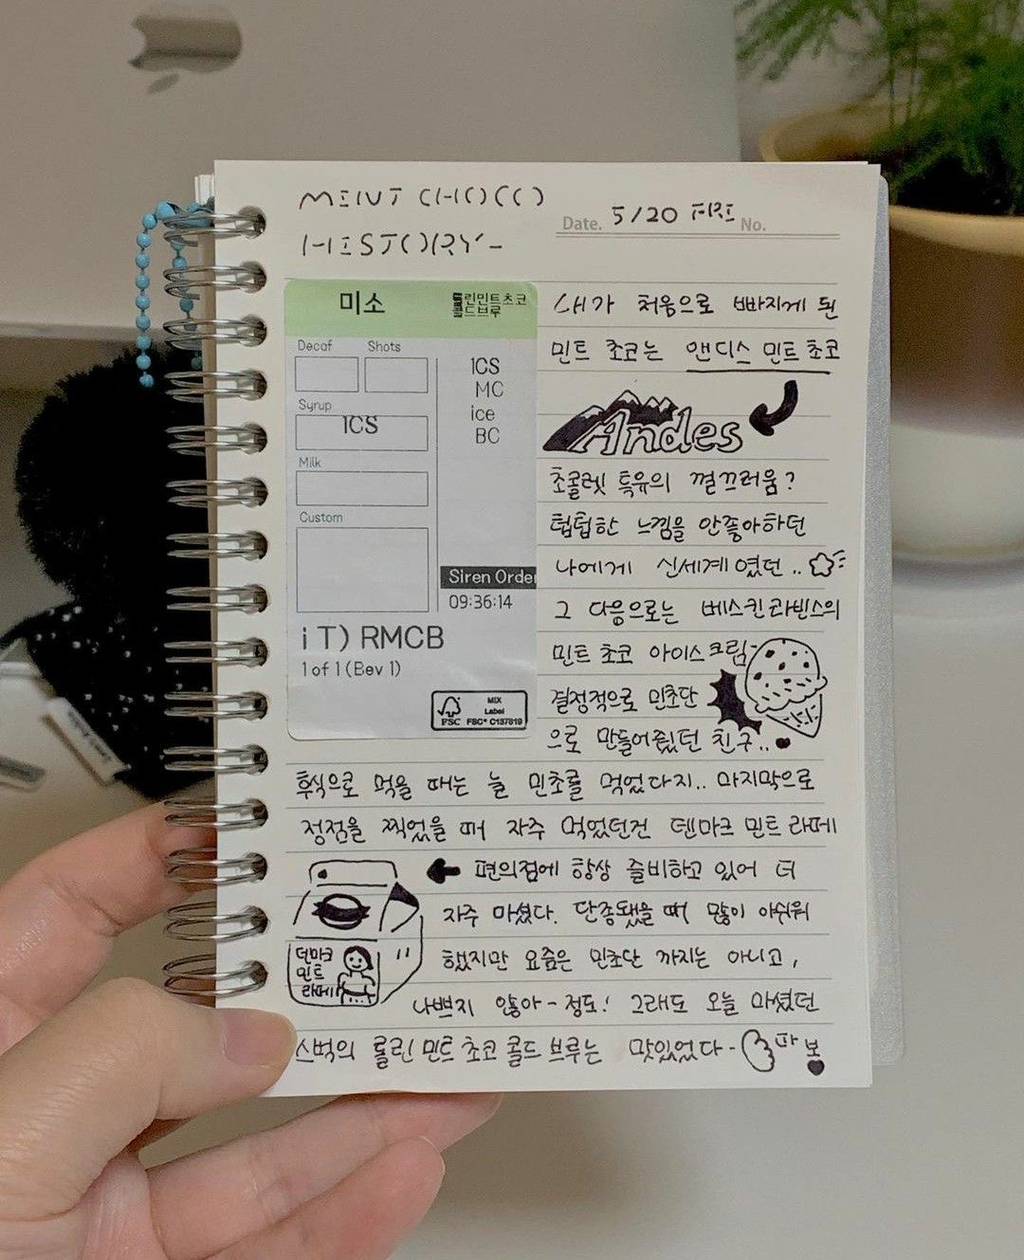 MINT CHOCO
HISTORY-
Date. 5/20 FRI No.
미소
롤린민트초코
콜드브루
Decaf Shots
Syrup
ICS
Milk
Custom
ICS
MC
ice
BC
Siren Order
09:36:14
i T) RMCB
1 of 1 (Bev 1)
FSC
MIX
Label
FSC® C137819
내가 처음으로 빠지게 된
민트 초코는 앤디스 민트 초코
Andes
초콜렛 특유의 껄끄러움?
텁텁한 느낌을 안좋아하던
나에게 신세계였던..
그 다음으로는 베스킨라빈스의
민트 초코 아이스크림-
결정적으로 민초단
으로 만들어줬던 친구..
후식으로 먹을 때는 늘 민초를 먹었다지.. 마지막으로
정점을 찍었을 때 자주 먹었던건 덴마크 민트 라떼
편의점에 항상 즐비하고 있어 더
자주 마셨다. 단종됐을 때 많이 아쉬워
했지만 요즘은 민초단 까지는 아니고,
나쁘지 않아-정도! 그래도 오늘 마셨던
스벅의 롤린 민트 초코 콜드 브루는 맛있었다-
덴마크
민트
라떼
따봉